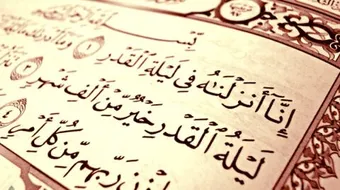 إِنَّا أَنزَلْنَٰهُ فِى لَيْلَةِ ٱلْقَدْرِ ١ وَمَآ
لَيْلَةُ ٱلْقَدْرِ خَيْرٌ مِّنْ أَلْفِ شَهْرٍ ٣
رَبِّهِم مِّن كُلِّ أَمْرٍ ٤